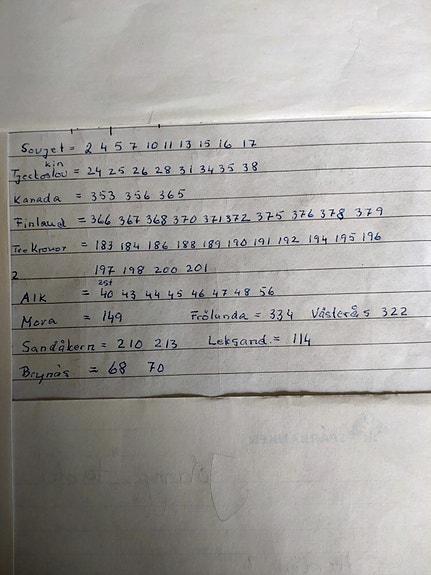 Sovjet = 2 4 5 7 10 11 13 15 16 17
kin
Tjeckoslov = 24 25 26 28 31 34 35 38
Kanada = 353 356 365
Finland = 366 367 368 370 371 372 375 376 378 379
Tre Kronor = 183 184 186 188 189 190 191 192 194 195 196
2 197 198 200 201
2st
AIK = 40 43 44 45 46 47 48 56
Mora = 149 Frölunda = 334 Västerås 322
Sandåkern = 210 213 Leksand. = 114
Brynäs = 68 70
SPARBANKEN